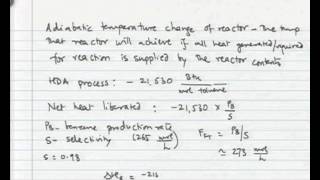 Adiabatic temperature change of reactor - The temp
that reactor will achieve if all heat generated/required
for reaction is supplied by the reactor contents
HDA process: - 21,530 Btu/mol toluene
Net heat liberated: -21,530 × PB/S
PB - benzene production rate
(265 mol/h)
S - selectivity
FFT = PB/S
≈ 273 mol/h
S = 0.98